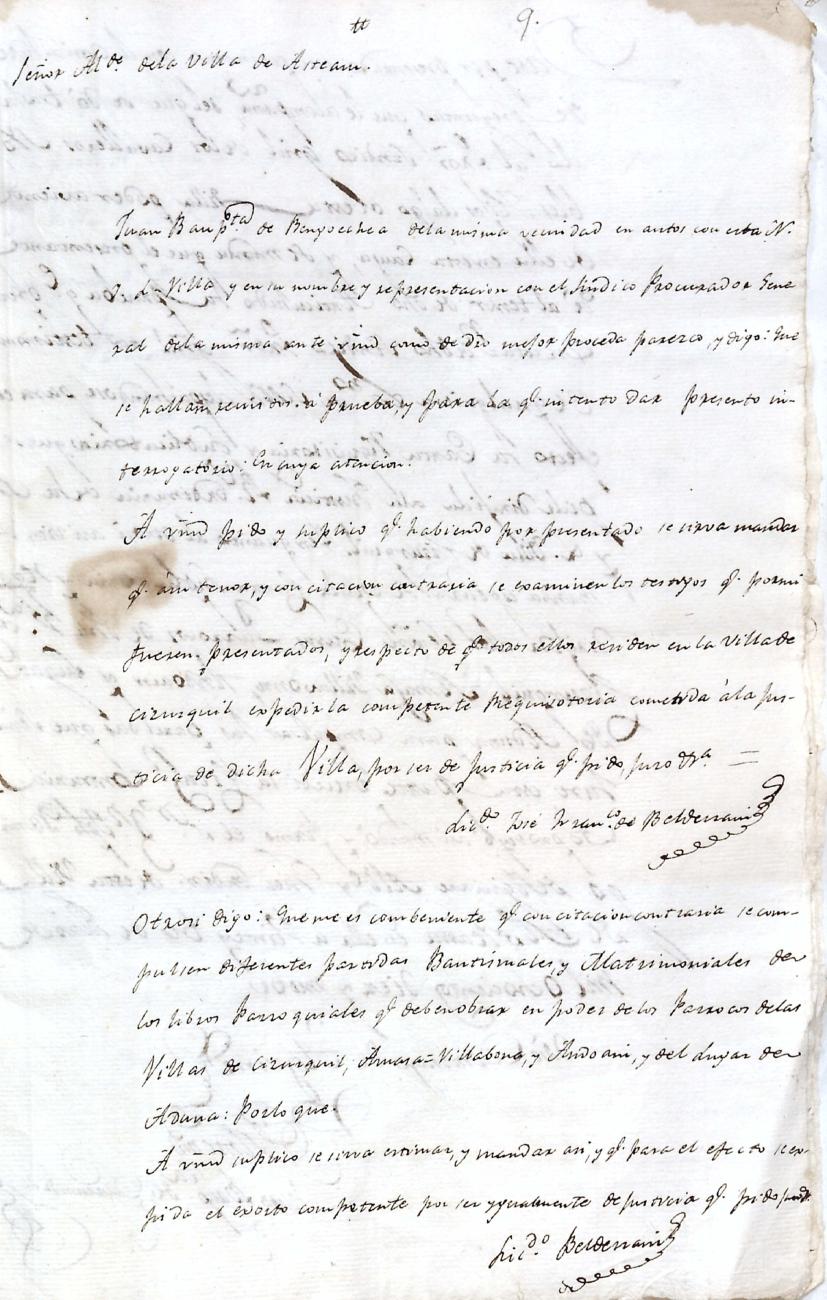 tt 9.
Señor Alde. dela Villa de Asteasu.
Juan Baupta de Bengoechea dela misma vecindad en autos con esta N.
y. L. Villa y en su nombre y representacion con el Sindico Procurador Gene
ral dela misma ante vmd como de Dro mejor proceda parezco, y digo: Que
se hallan recividos à prueba, y para la q.e intento dar presento in-
terrogatorio: En cuya atencion.
A vmd pido y suplico q.e habiendo por presentado se sirva mandar
q.e à su tenor, y con citacion contraria se examinen los testigos q.e por mi
fueren presentados, y respecto de q.e todos ellos residen en la Villa de
Cizurquil expedir la competente Requisitoria cometida à la Jus-
ticia de dicha Villa, por ser de Justicia q.e pido, juro &ra =
Licdo. José Franco. de Belderrain
Otrosi digo: Que me es combeniente q.e con citacion contraria se com-
pulsen diferentes partidas Bautismales, y Matrimoniales de
los libros Parroquiales q.e deben obrar en poder de los Parrocos delas
Villas de Cizurquil, Amasa=Villabona, y Andoain, y del Lugar de
Aduna: Por lo que.
A vmd suplico se sirva estimar, y mandar asi, y q.e para el efecto se ex-
pida el exòrto competente por ser ygualmente de justicia q.e pido
Licdo. Belderrain